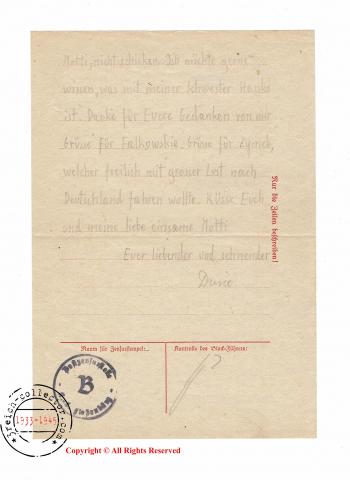 Motti, nicht schicken. Ich möchte gerne
wissen, was mit meiner Schwester Hanka
ist. Danke für Euere Gedanken von mir
Grüße für Falkowskie. Grüße für
welcher freilich mit grauer Lust nach
Deutschland fahren wollte. Küsse Euch
und meine liebe einsame Motti
Euer liebender und sehnender
Nur die Zeilen beschreiben!
Raum für Zensurstempel:
Kontrolle des Block-Führers:
Postzensurstelle
B
Flossenbürg
3reich-collector.com
1933-1945
Copyright © All Rights Reserved